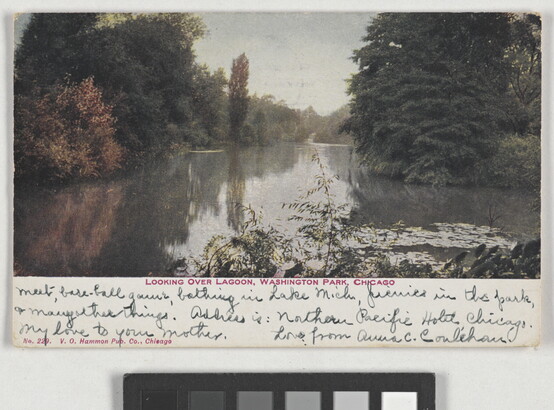 LOOKING OVER LAGOON, WASHINGTON PARK, CHICAGO
meet, base-ball game, bathing in Lake Mich, picnics in the park,
& many other things. Address is: Northern Pacific Hotel Chicago.
My love to your mother. Love from Anna C. Coulehan
No. 229. V. O. Hammon Pub. Co., Chicago